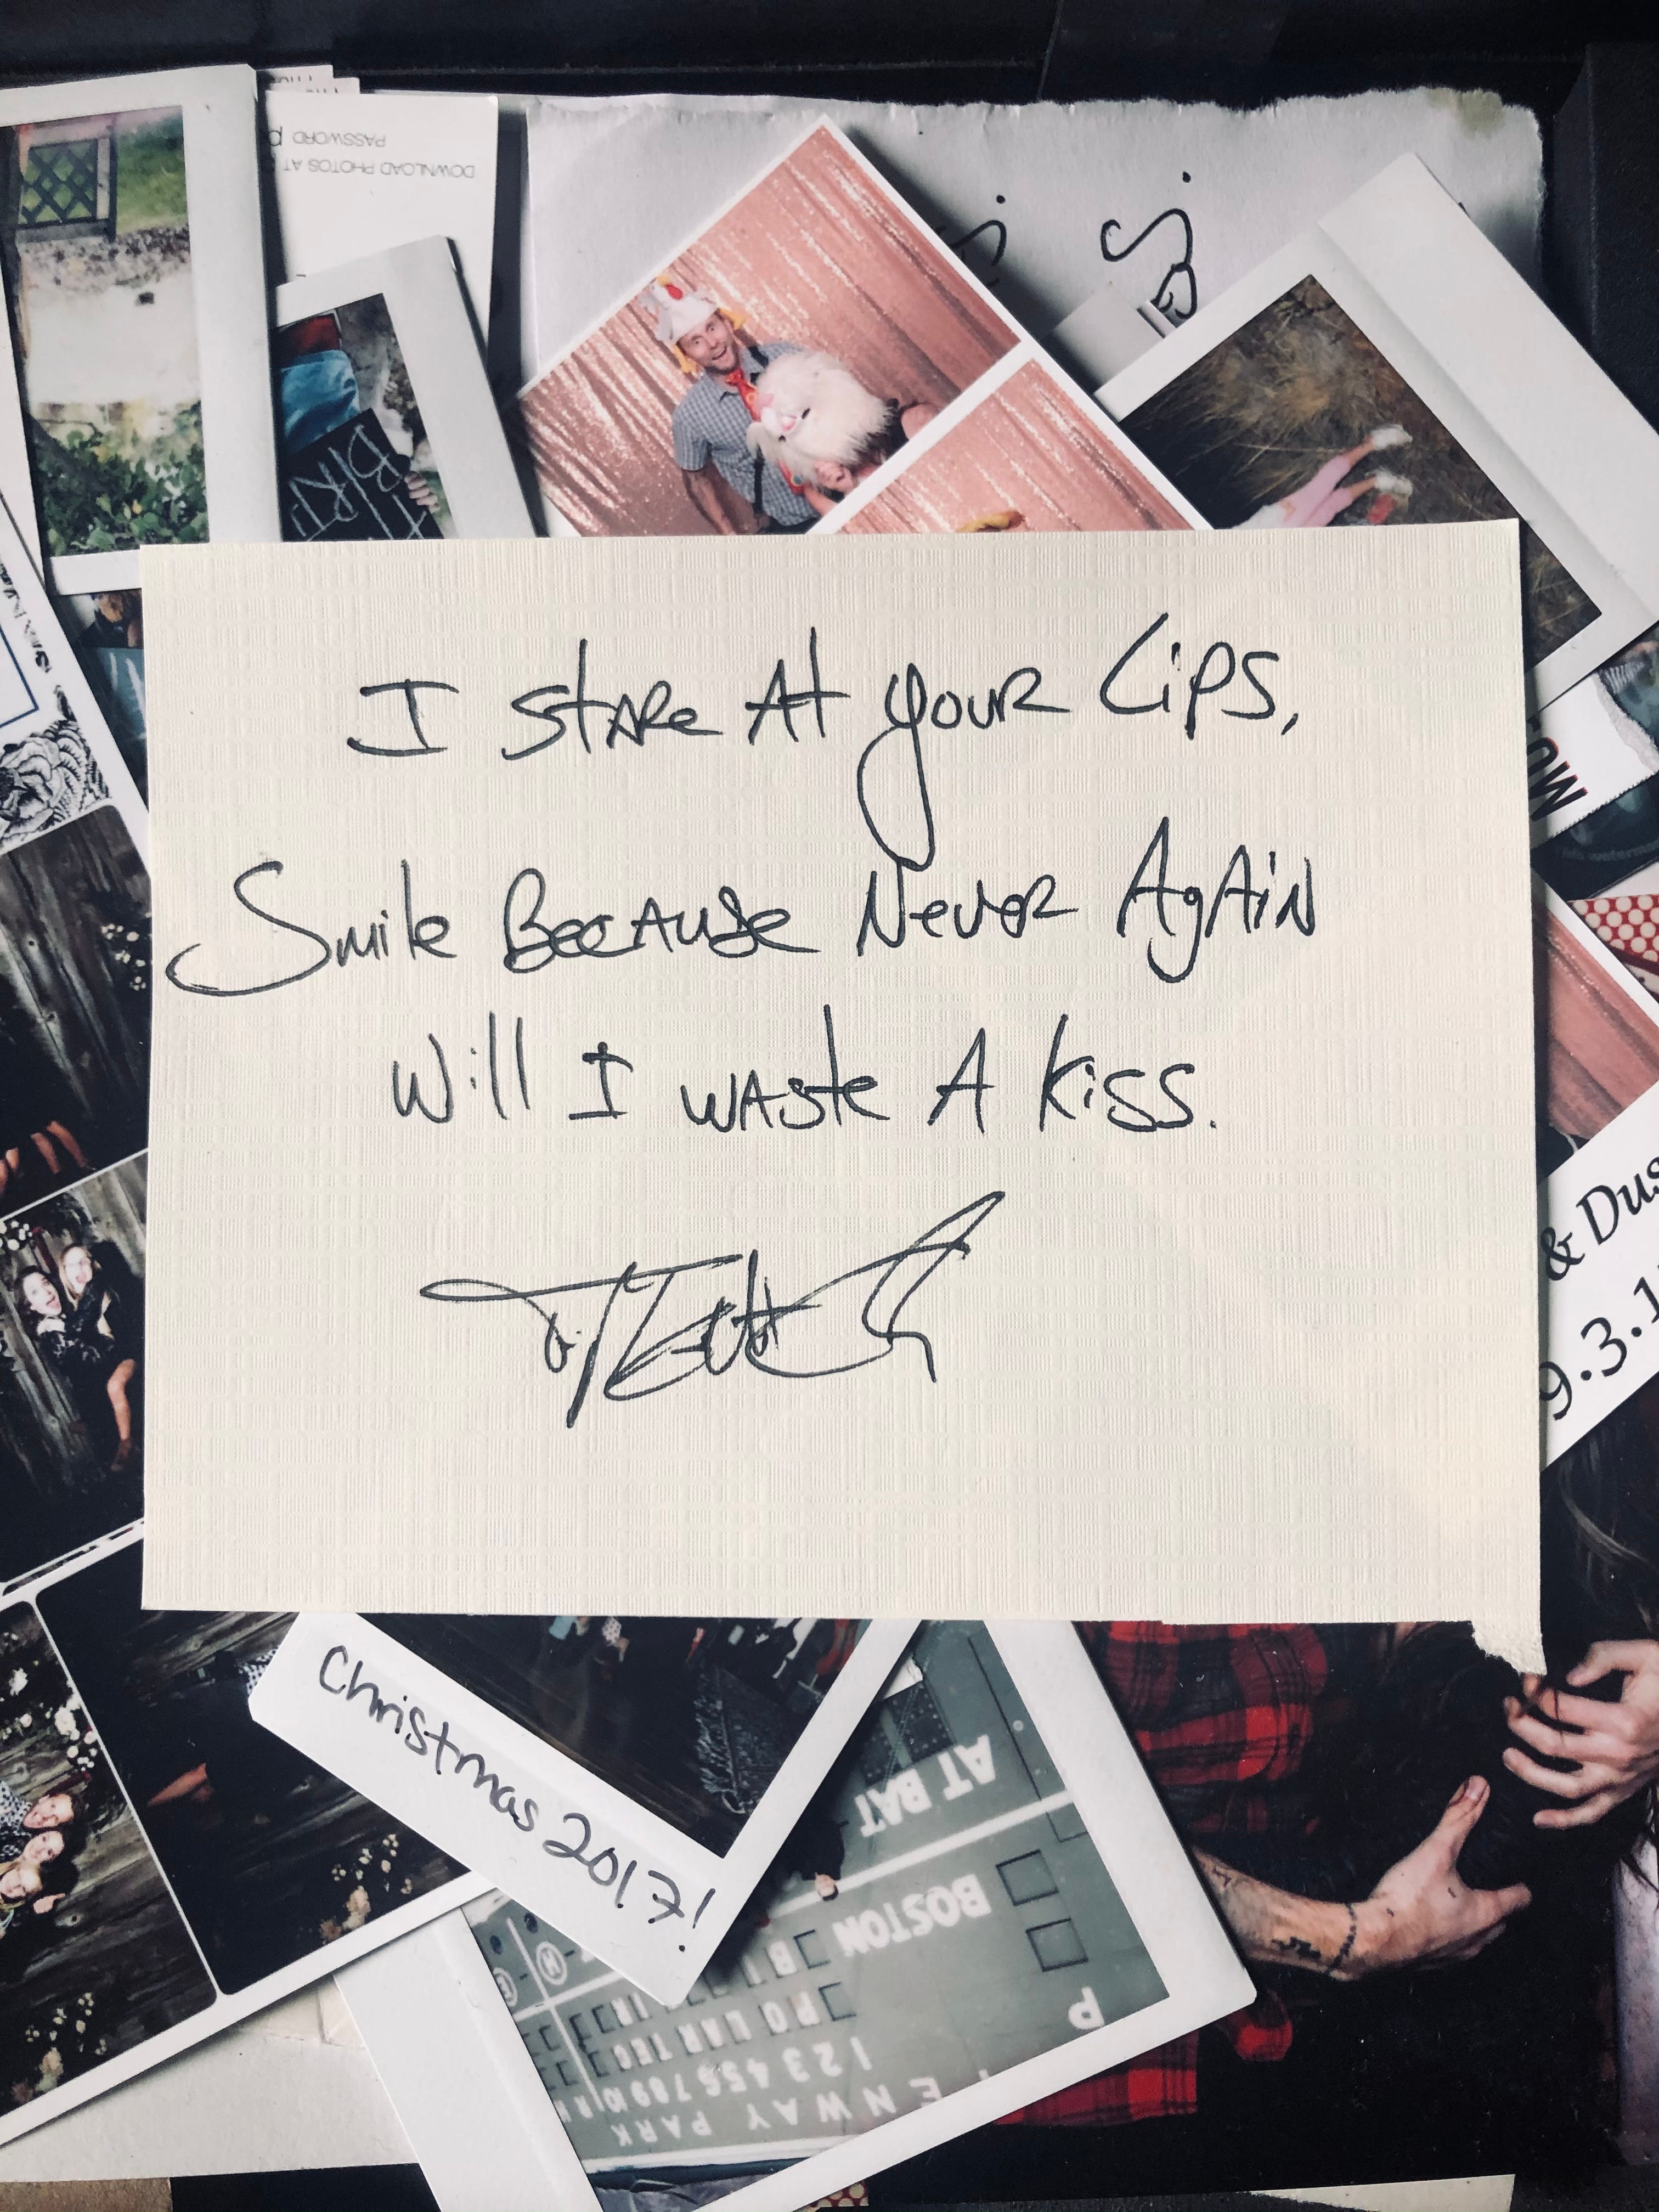 DOWNLOAD PHOTOS AT
PASSWORD p
BIRT
I Stare At your Lips,
Smile Because Never Again
Will I waste A kiss.
& Dus
9.3.1
Christmas 2017!
AT BAT
BOSTON
P
1 2 3 4 5 6 7 8 9 10 R H
ENWAY PARK